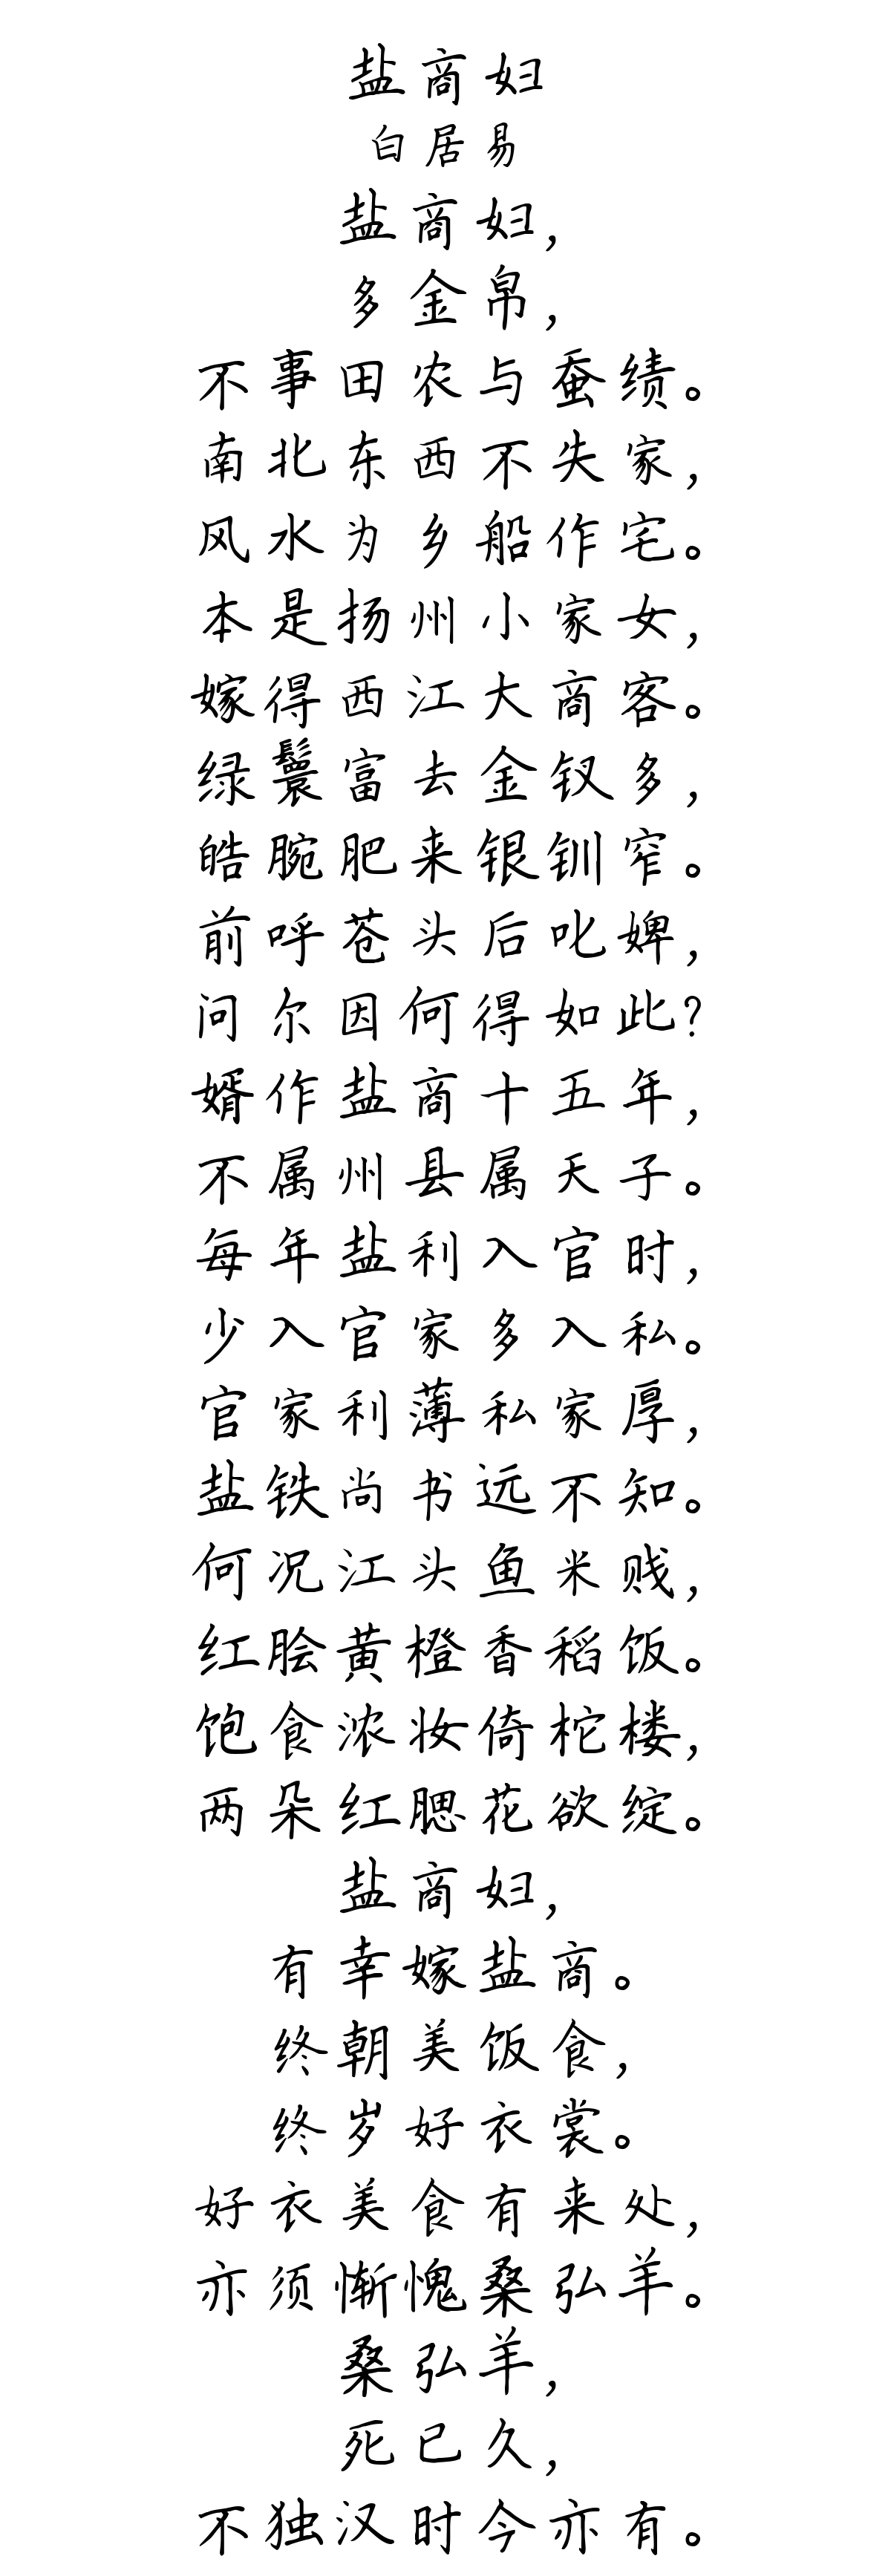 盐商妇
白居易
盐商妇，
多金帛，
不事田农与蚕绩。
南北东西不失家，
风水为乡船作宅。
本是扬州小家女，
嫁得西江大商客。
绿鬟富去金钗多，
皓腕肥来银钏窄。
前呼苍头后叱婢，
问尔因何得如此？
婿作盐商十五年，
不属州县属天子。
每年盐利入官时，
少入官家多入私。
官家利薄私家厚，
盐铁尚书远不知。
何况江头鱼米贱，
红脍黄橙香稻饭。
饱食浓妆倚柁楼，
两朵红腮花欲绽。
盐商妇，
有幸嫁盐商。
终朝美饭食，
终岁好衣裳。
好衣美食有来处，
亦须惭愧桑弘羊。
桑弘羊，
死已久，
不独汉时今亦有。